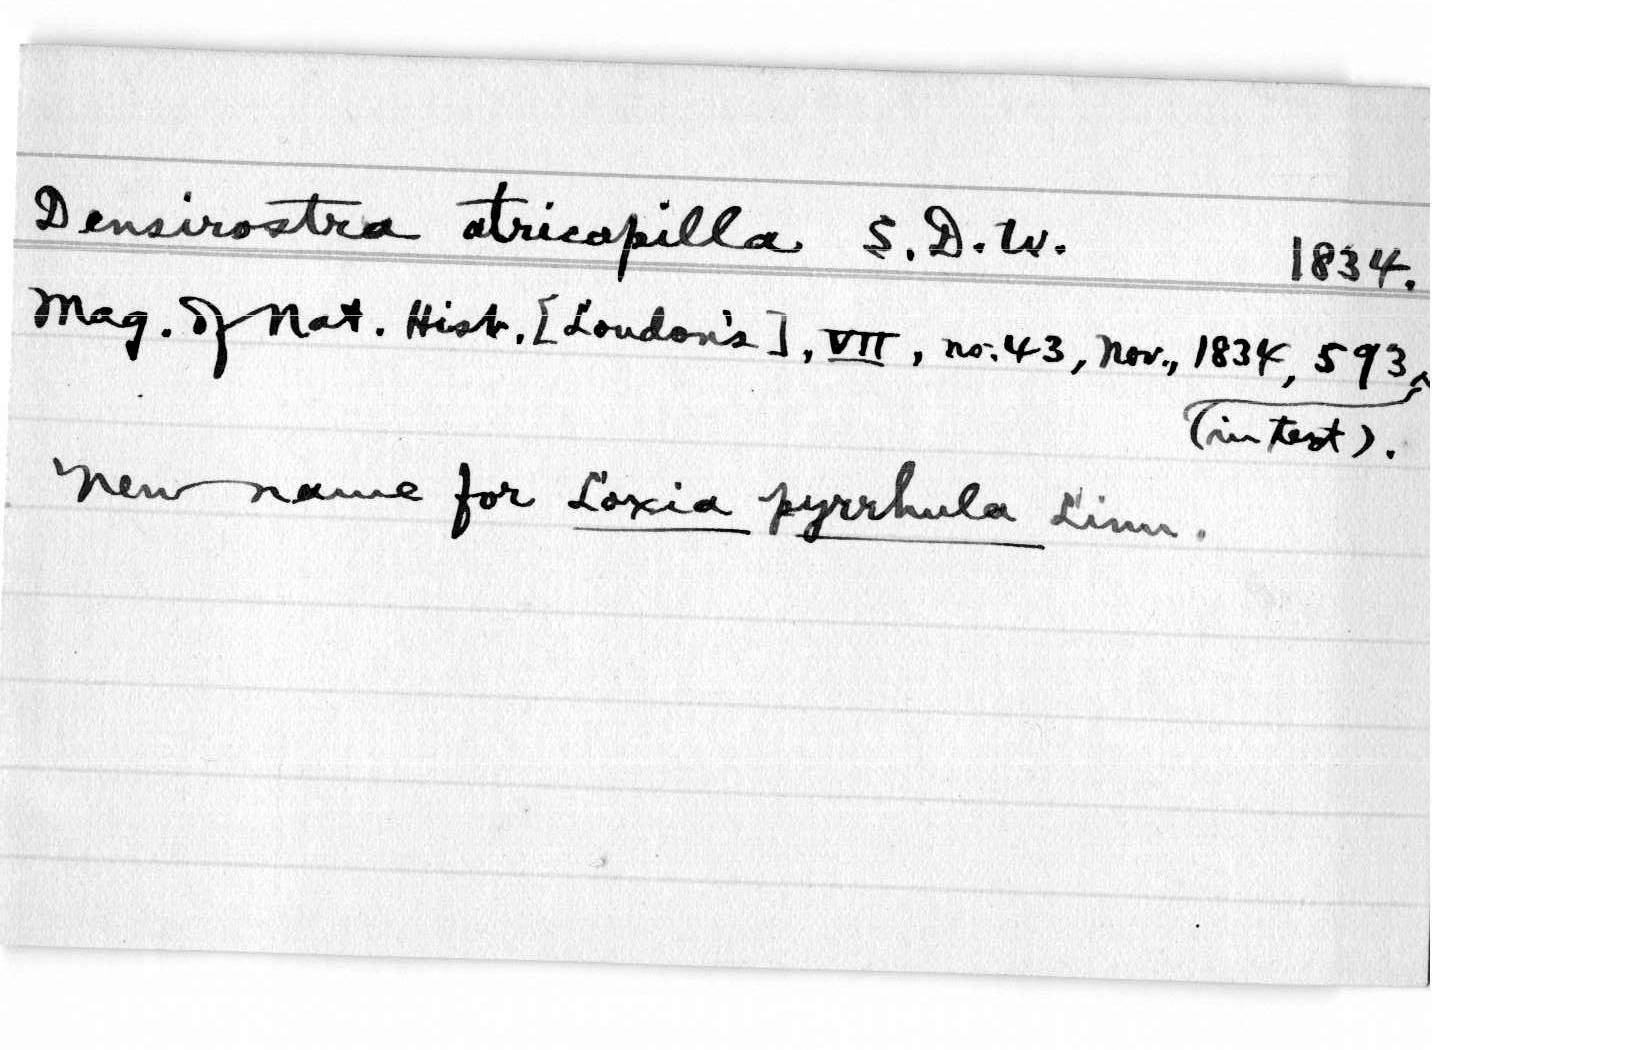 Densirostra atricapilla S. D. W. 1834.
Mag. of Nat. Hist. [Loudon's], VII, no. 43, Nov., 1834, 593
(in text).
New name for Loxia pyrrhula Linn.